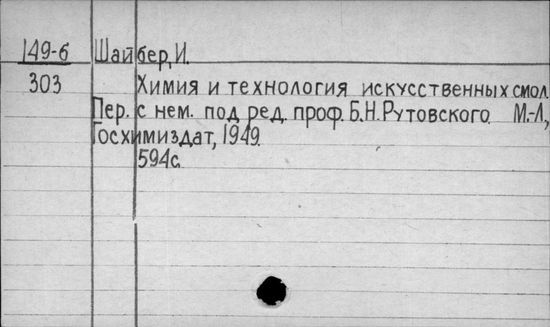 149-6 Шайбер, И.
303 Химия и технология искусственных смол
Пер. с нем. под ред. проф. Б.Н.Рутовского. М.-Л.,
Госхимиздат, 1949.
594с.